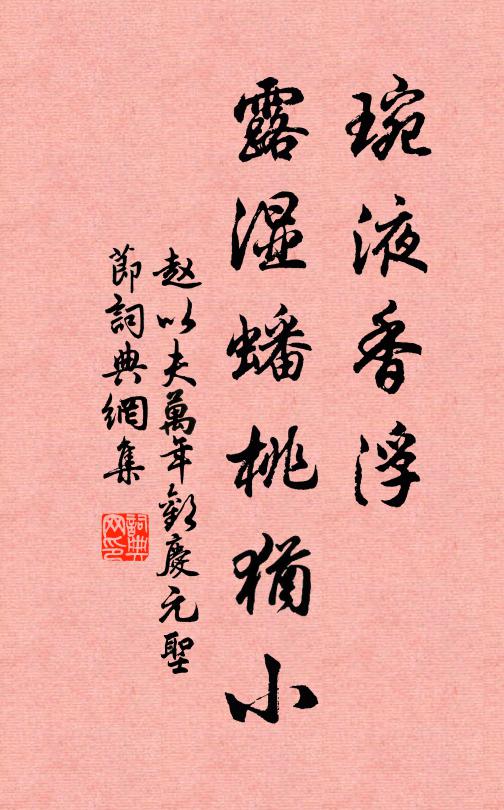 琬液香浮
露湿蟠桃猶小
赵以夫萬年歡慶元聖
節詞典網集
詞典網印